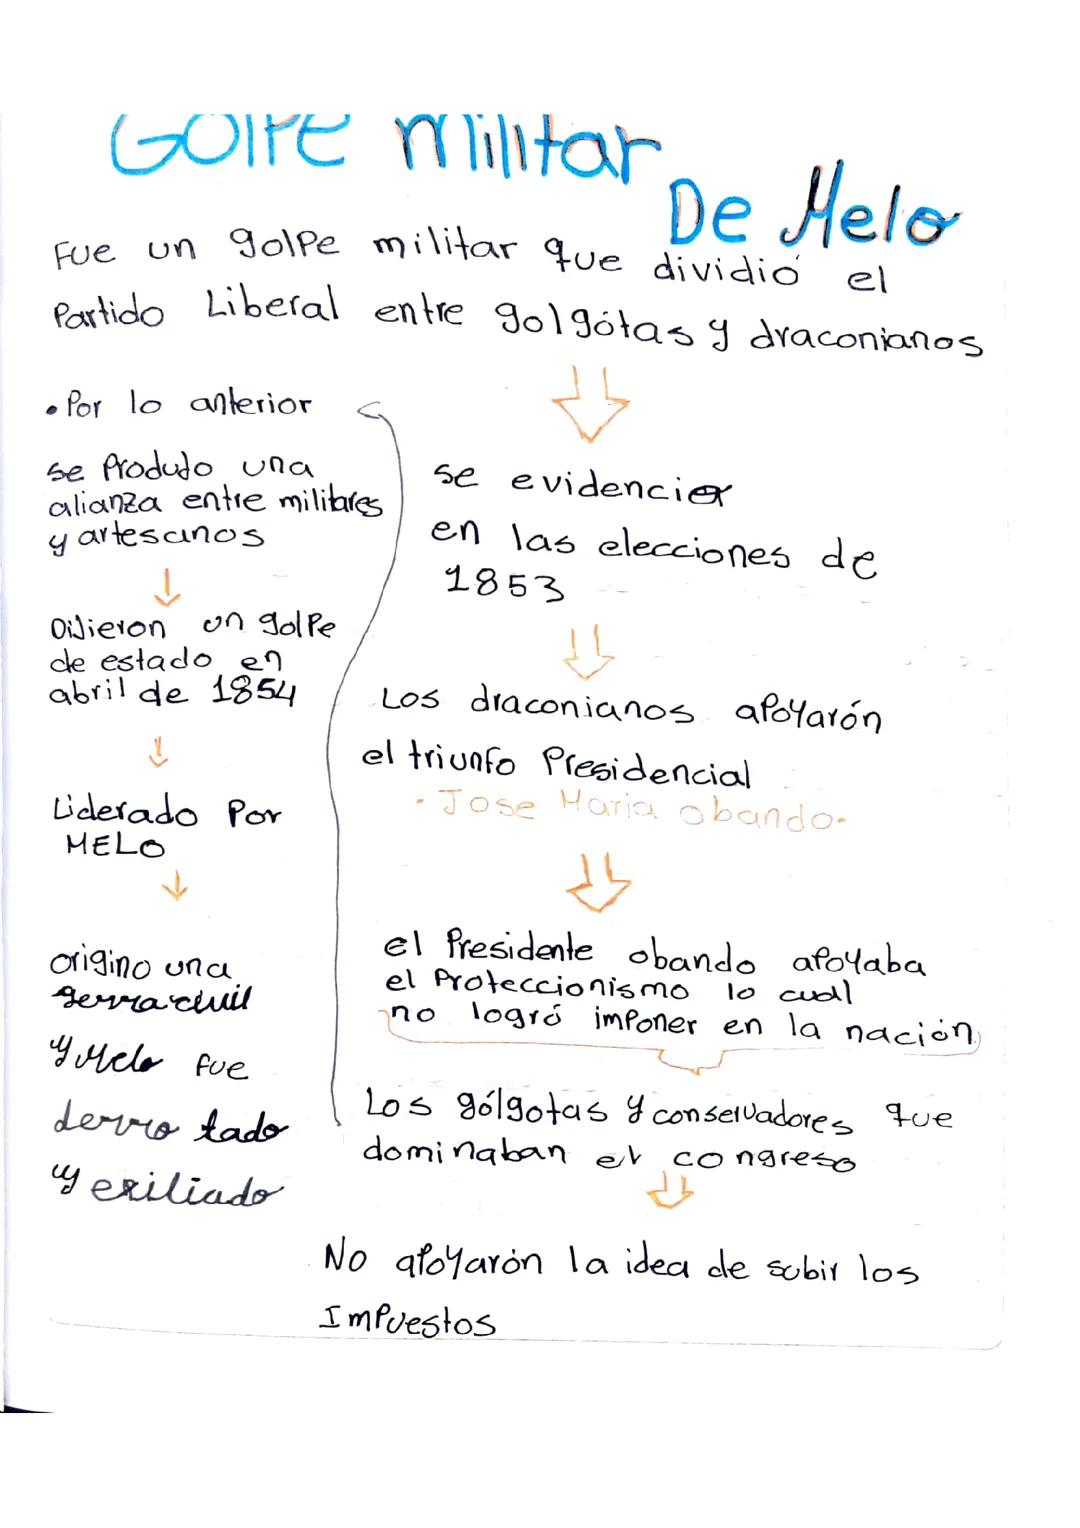 Golpe militar
De Melo
Fue un golpe militar que dividió el
Partido Liberal entre golgótas y draconianos
se evidencia
en las elecciones de
1853
Los draconianos apoyarón
el triunfo Presidencial
• Jose Maria obando.
el Presidente obando apoyaba
el Proteccionismo lo cual
no logró imponer en la nación
Los gólgotas y conservadores que
dominaban el congreso
No apoyarón la idea de subir los
Impuestos
• Por lo anterior
se Produjo una
alianza entre militares
y artesanos
Dijieron un golpe
de estado en
abril de 1854
Liderado Por
MELO
origino una
gerra civil
y Melo fue
derrotado
y exiliado